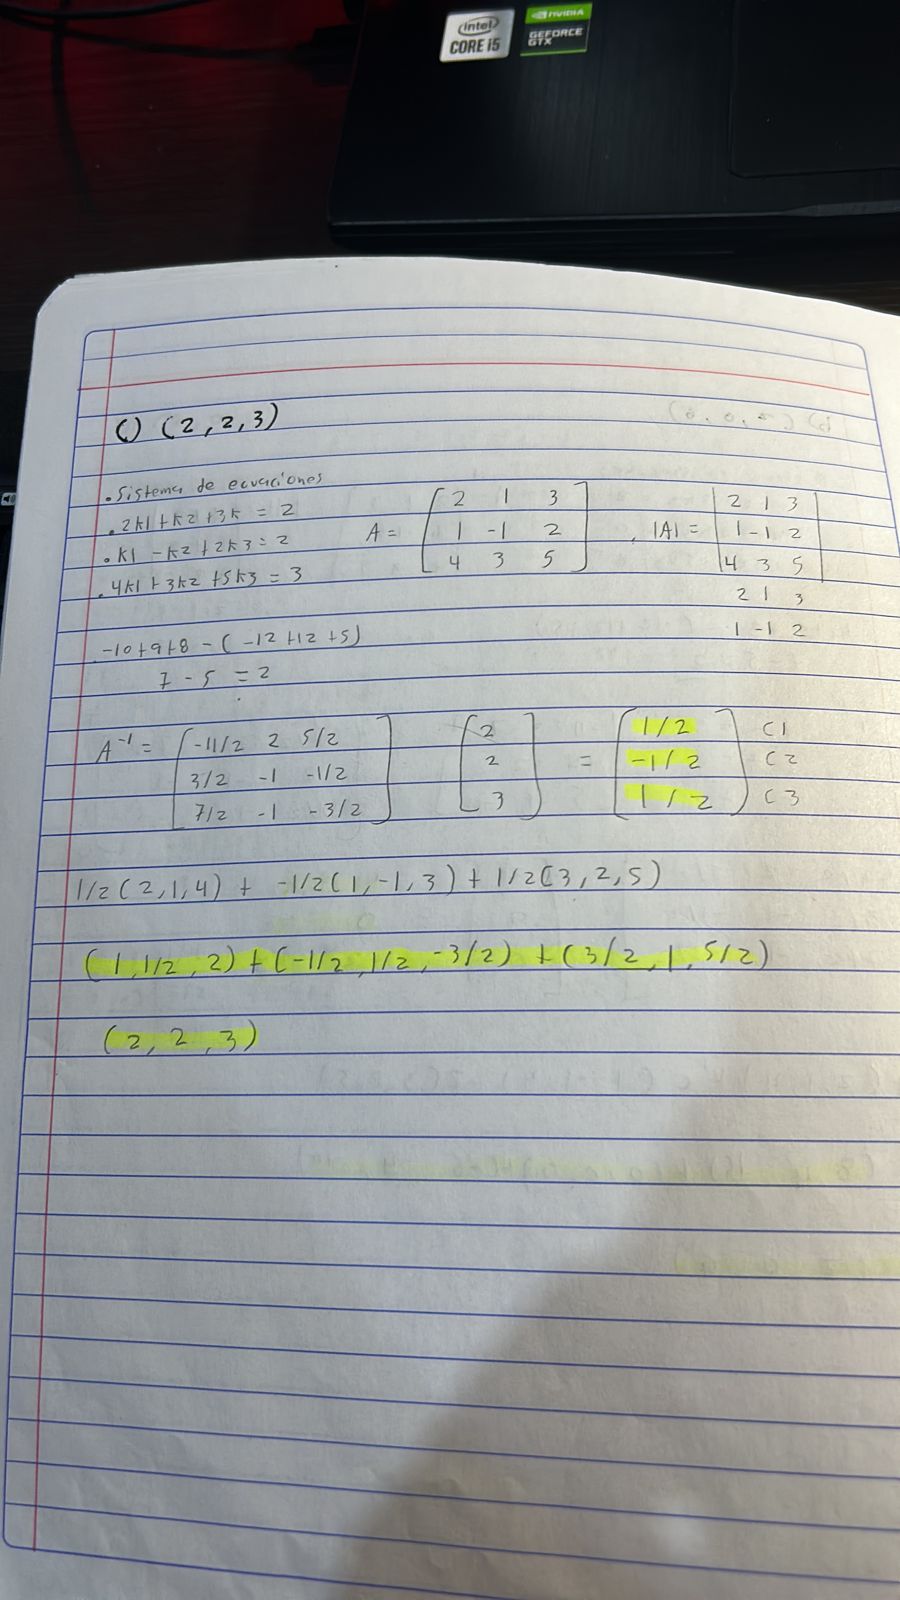 intel
CORE i5
NVIDIA
GEFORCE
GTX
C) (2,2,3)
. Sistema de ecuaciones
. 2k1 + k2 + 3k = 2
. k1 - k2 + 2k3 = 2
. 4k1 + 3k2 + 5k3 = 3
A = [ 2 1 3
1 -1 2
4 3 5 ]
, |A| = | 2 1 3
1 -1 2
4 3 5 |
2 1 3
1 -1 2
-10+9+8 - (-12+12+5)
7 - 5 = 2
A⁻¹ = [ -11/2 2 5/2
3/2 -1 -1/2
7/2 -1 -3/2 ]
[ 2
2
3 ]
= [ 1/2 C1
-1/2 C2
1/2 ] C3
1/2(2,1,4) + -1/2(1,-1,3) + 1/2(3,2,5)
(1,1/2,2) + (-1/2,1/2,-3/2) + (3/2,1,5/2)
(2,2,3)